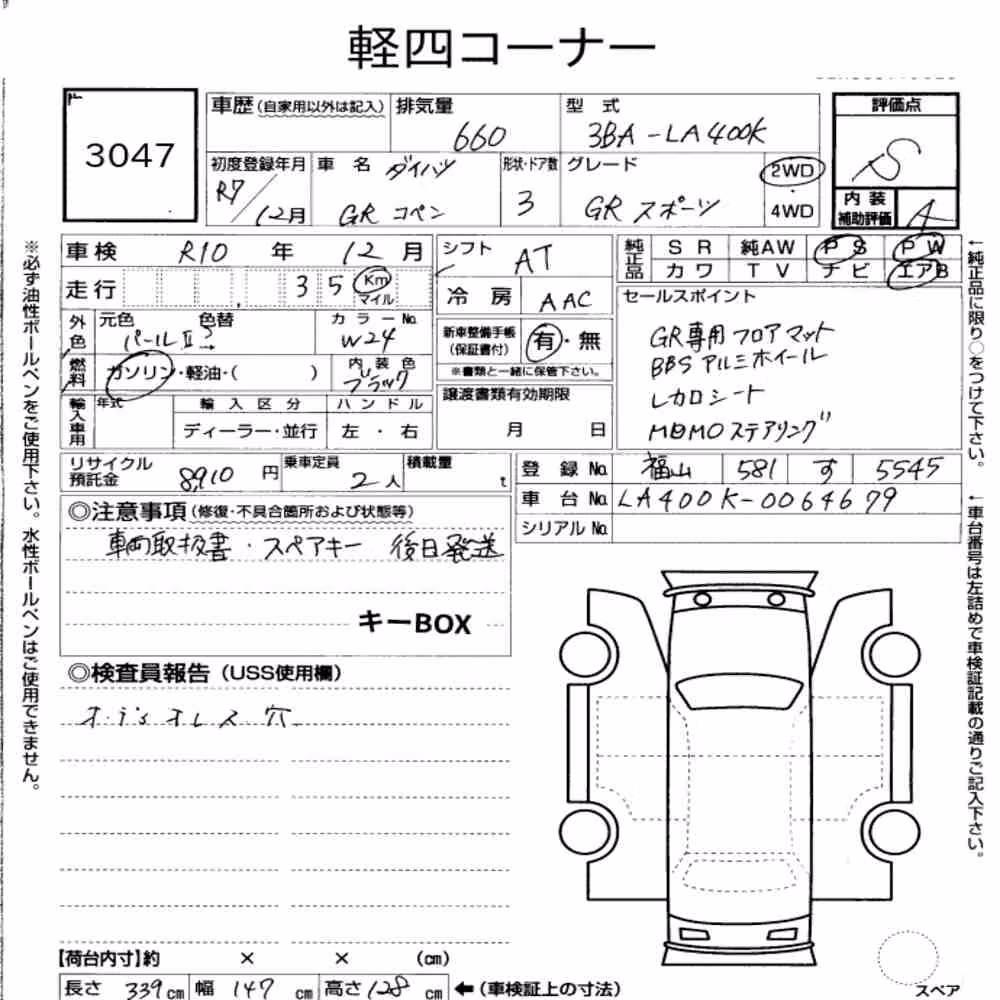 軽四コーナー
3047
車歴(自家用以外は記入)
排気量
660
型式
3BA-LA400K
評価点
S
初度登録年月
R7/12月
車名
ダイハツ
GR コペン
形状・ドア数
3
グレード
GR スポーツ
2WD
・
4WD
内装
補助評価
A
車検 R10年 12月
走行 35 Km
マイル
シフト
AT
冷房 AAC
純正品
SR 純AW PS PW
カワ TV ナビ エアB
外色
元色 色替
パールⅡ→
カラーNo.
W24
燃料
ガソリン・軽油・( )
内装色
ブラック
新車整備手帳
(保証書付)
有・無
※書類と一緒に保管下さい。
セールスポイント
GR専用フロアマット
BBSアルミホイール
レカロシート
MOMOステアリング
輸入車用
年式
輸入区分
ディーラー・並行
ハンドル
左・右
譲渡書類有効期限
月 日
リサイクル
預託金
8910円
乗車定員
2人
積載量
t
登録No. 福山 581 す 5545
車台No. LA400K-0064679
シリアルNo.
◎注意事項(修復・不具合箇所および状態等)
車両取扱書・スペアキー 後日発送
キーBOX
◎検査員報告(USS使用欄)
オレス穴
【荷台内寸】約 × × (cm)
長さ 339cm 幅 147cm 高さ 128cm ←(車検証上の寸法)
スペア
※必ず油性ボールペンをご使用下さい。水性ボールペンはご使用できません。
←純正品に限り○をつけて下さい。
←車台番号は左詰めで車検証記載の通りご記入下さい。